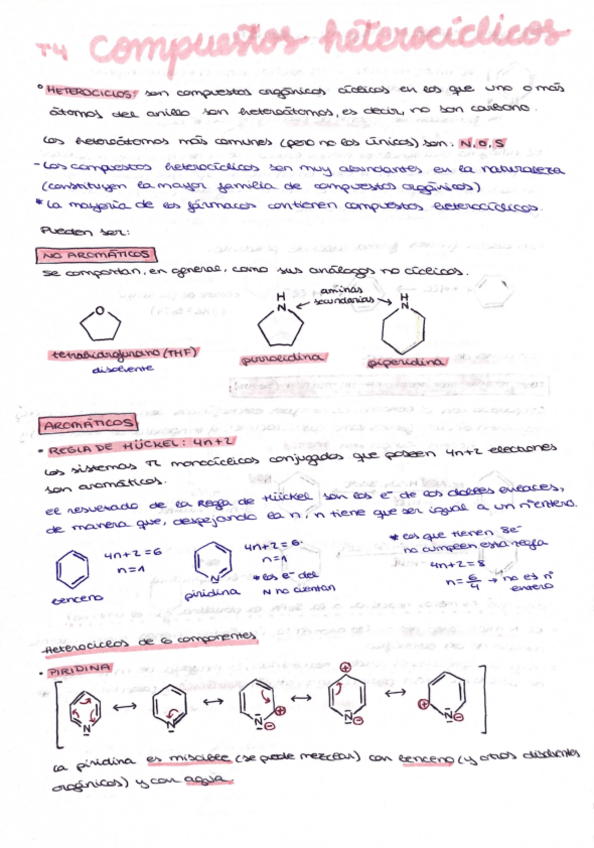 T4 compuestos heterocíclicos
° HETEROCICLOS: son compuestos orgánicos cíclicos en los que uno o más
átomos del anillo son heteroátomos, es decir, no son carbono.
Los heteroátomos más comunes (pero no los únicos) son: N, O, S
- Los compuestos heterocíclicos son muy abundantes en la naturaleza
(constituyen la mayor familia de compuestos orgánicos)
* La mayoría de los fármacos contienen compuestos heterocíclicos.
Pueden ser:
NO AROMÁTICOS
se comportan, en general, como sus análogos no cíclicos.
O
H
N
aminas
secundarias
H
N
tetrahidrofurano (THF)
disolvente
pirrolidina
piperidina
AROMÁTICOS
• REGLA DE HÜCKEL: 4n+2
Los sistemas π monocíclicos conjugados que poseen 4n+2 electrones
son aromáticos.
el resultado de la Regla de Hückel son los e⁻ de los dobles enlaces,
de manera que, despejando la n, n tiene que ser igual a un nºentero.
benceno
4n+2=6
n=1
N
piridina
4n+2=6
n=1
* los e⁻ del
N no cuentan
* los que tienen 8e⁻
no cumplen esta regla
4n+2=8
n= 6/4 → no es nº
entero
Heterociclos de 6 componentes
• PIRIDINA
N ↔ N ↔ N ⊕ ⊖ ↔ ⊕ N ⊖ ↔ ⊕ N ⊖
La piridina es miscible (se puede mezclar) con benceno (y otros disolventes
orgánicos) y con agua.